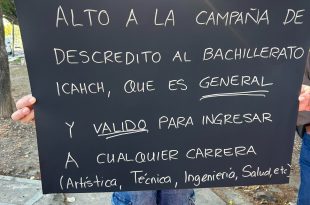 ALTO A LA CAMPAÑA DE
DESCREDITO AL BACHILLERATO
ICAHCH, QUE ES GENERAL
Y VALIDO PARA INGRESAR
A CUALQUIER CARRERA
(Artística, Técnica, Ingenieriá, Salud, etc)